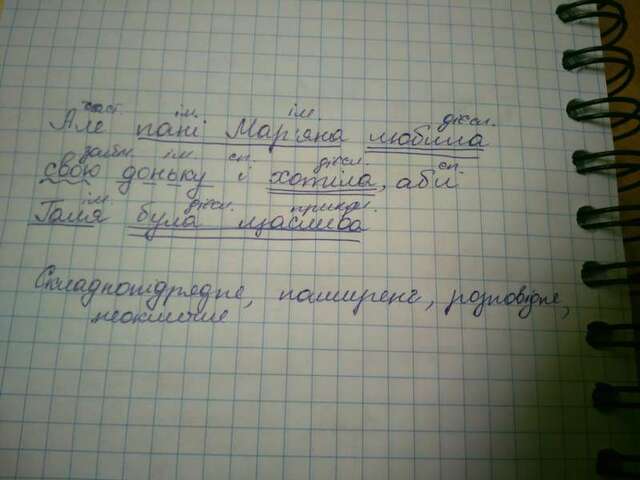 част. ім. ім. дієсл.
Але пані Мар'яна любила
займ. ім. сп. дієсл. сп.
свою доньку і хотіла, аби
ім. дієсл. прикм.
Галя була щаслива
Складнопідрядне, поширене, розповідне,
неокличне